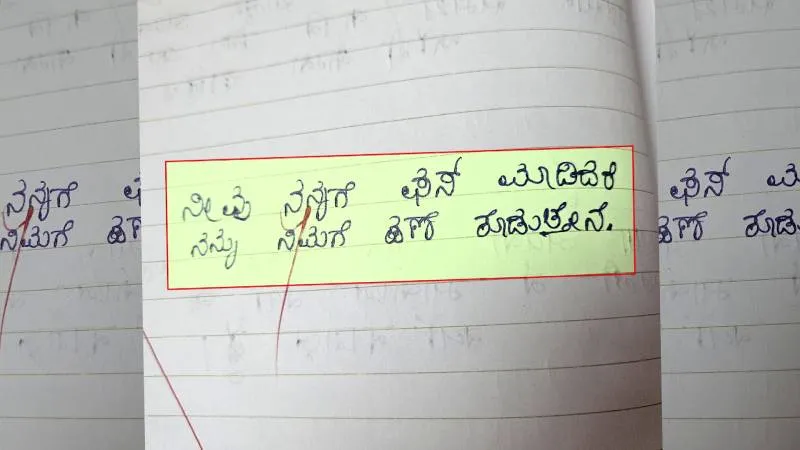 ನೀವು ನನ್ನಗೆ ಫೆನ್ ಮಾಡಿದರೆ
ನನ್ನು ನಿಮಗೆ ಹಣ ಕೂಡುತ್ತೇನೆ.